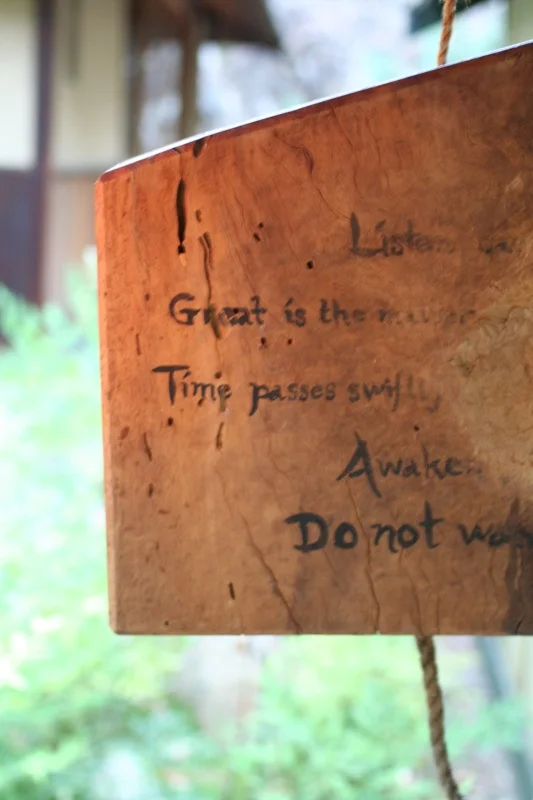 Listen
Great is the matter
Time passes swiftly
Awaken
Do not